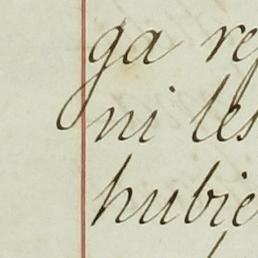 ga re
ni les
hubie